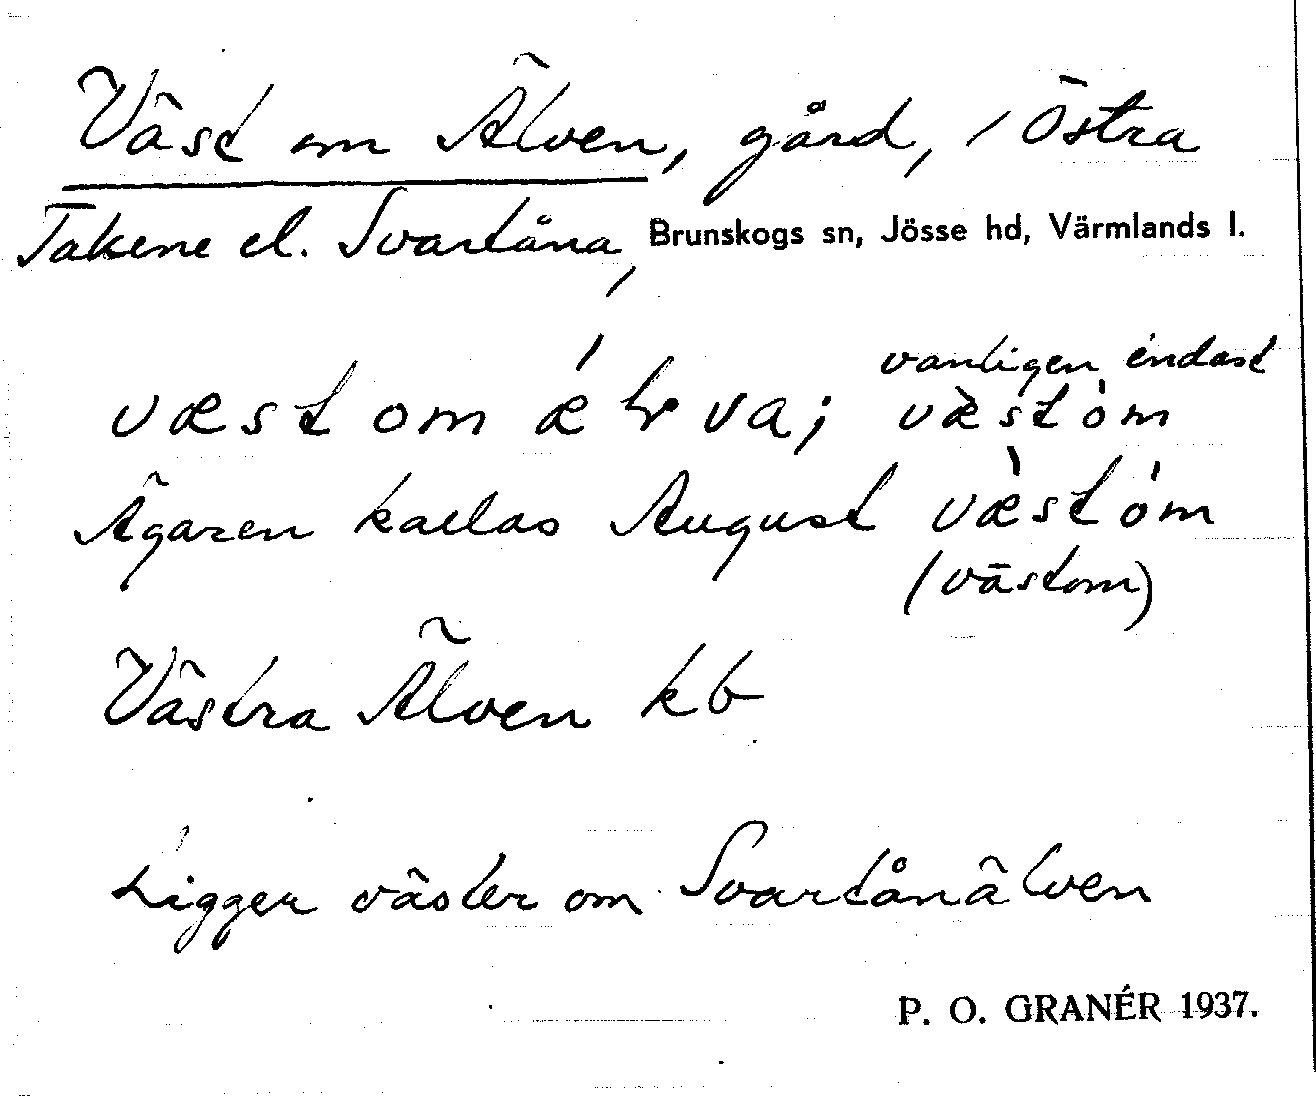 Väst om Älven, gård, i Östra
Takene el. Svartåna, Brunskogs sn, Jösse hd, Värmlands l.
væst om ǽɽva; vanligen endast væ̀stòm
Ägaren kallas August væ̀stóm
(västom)
Västra Älven kb
Ligger väster om Svartånälven
P. O. GRANÉR 1937.